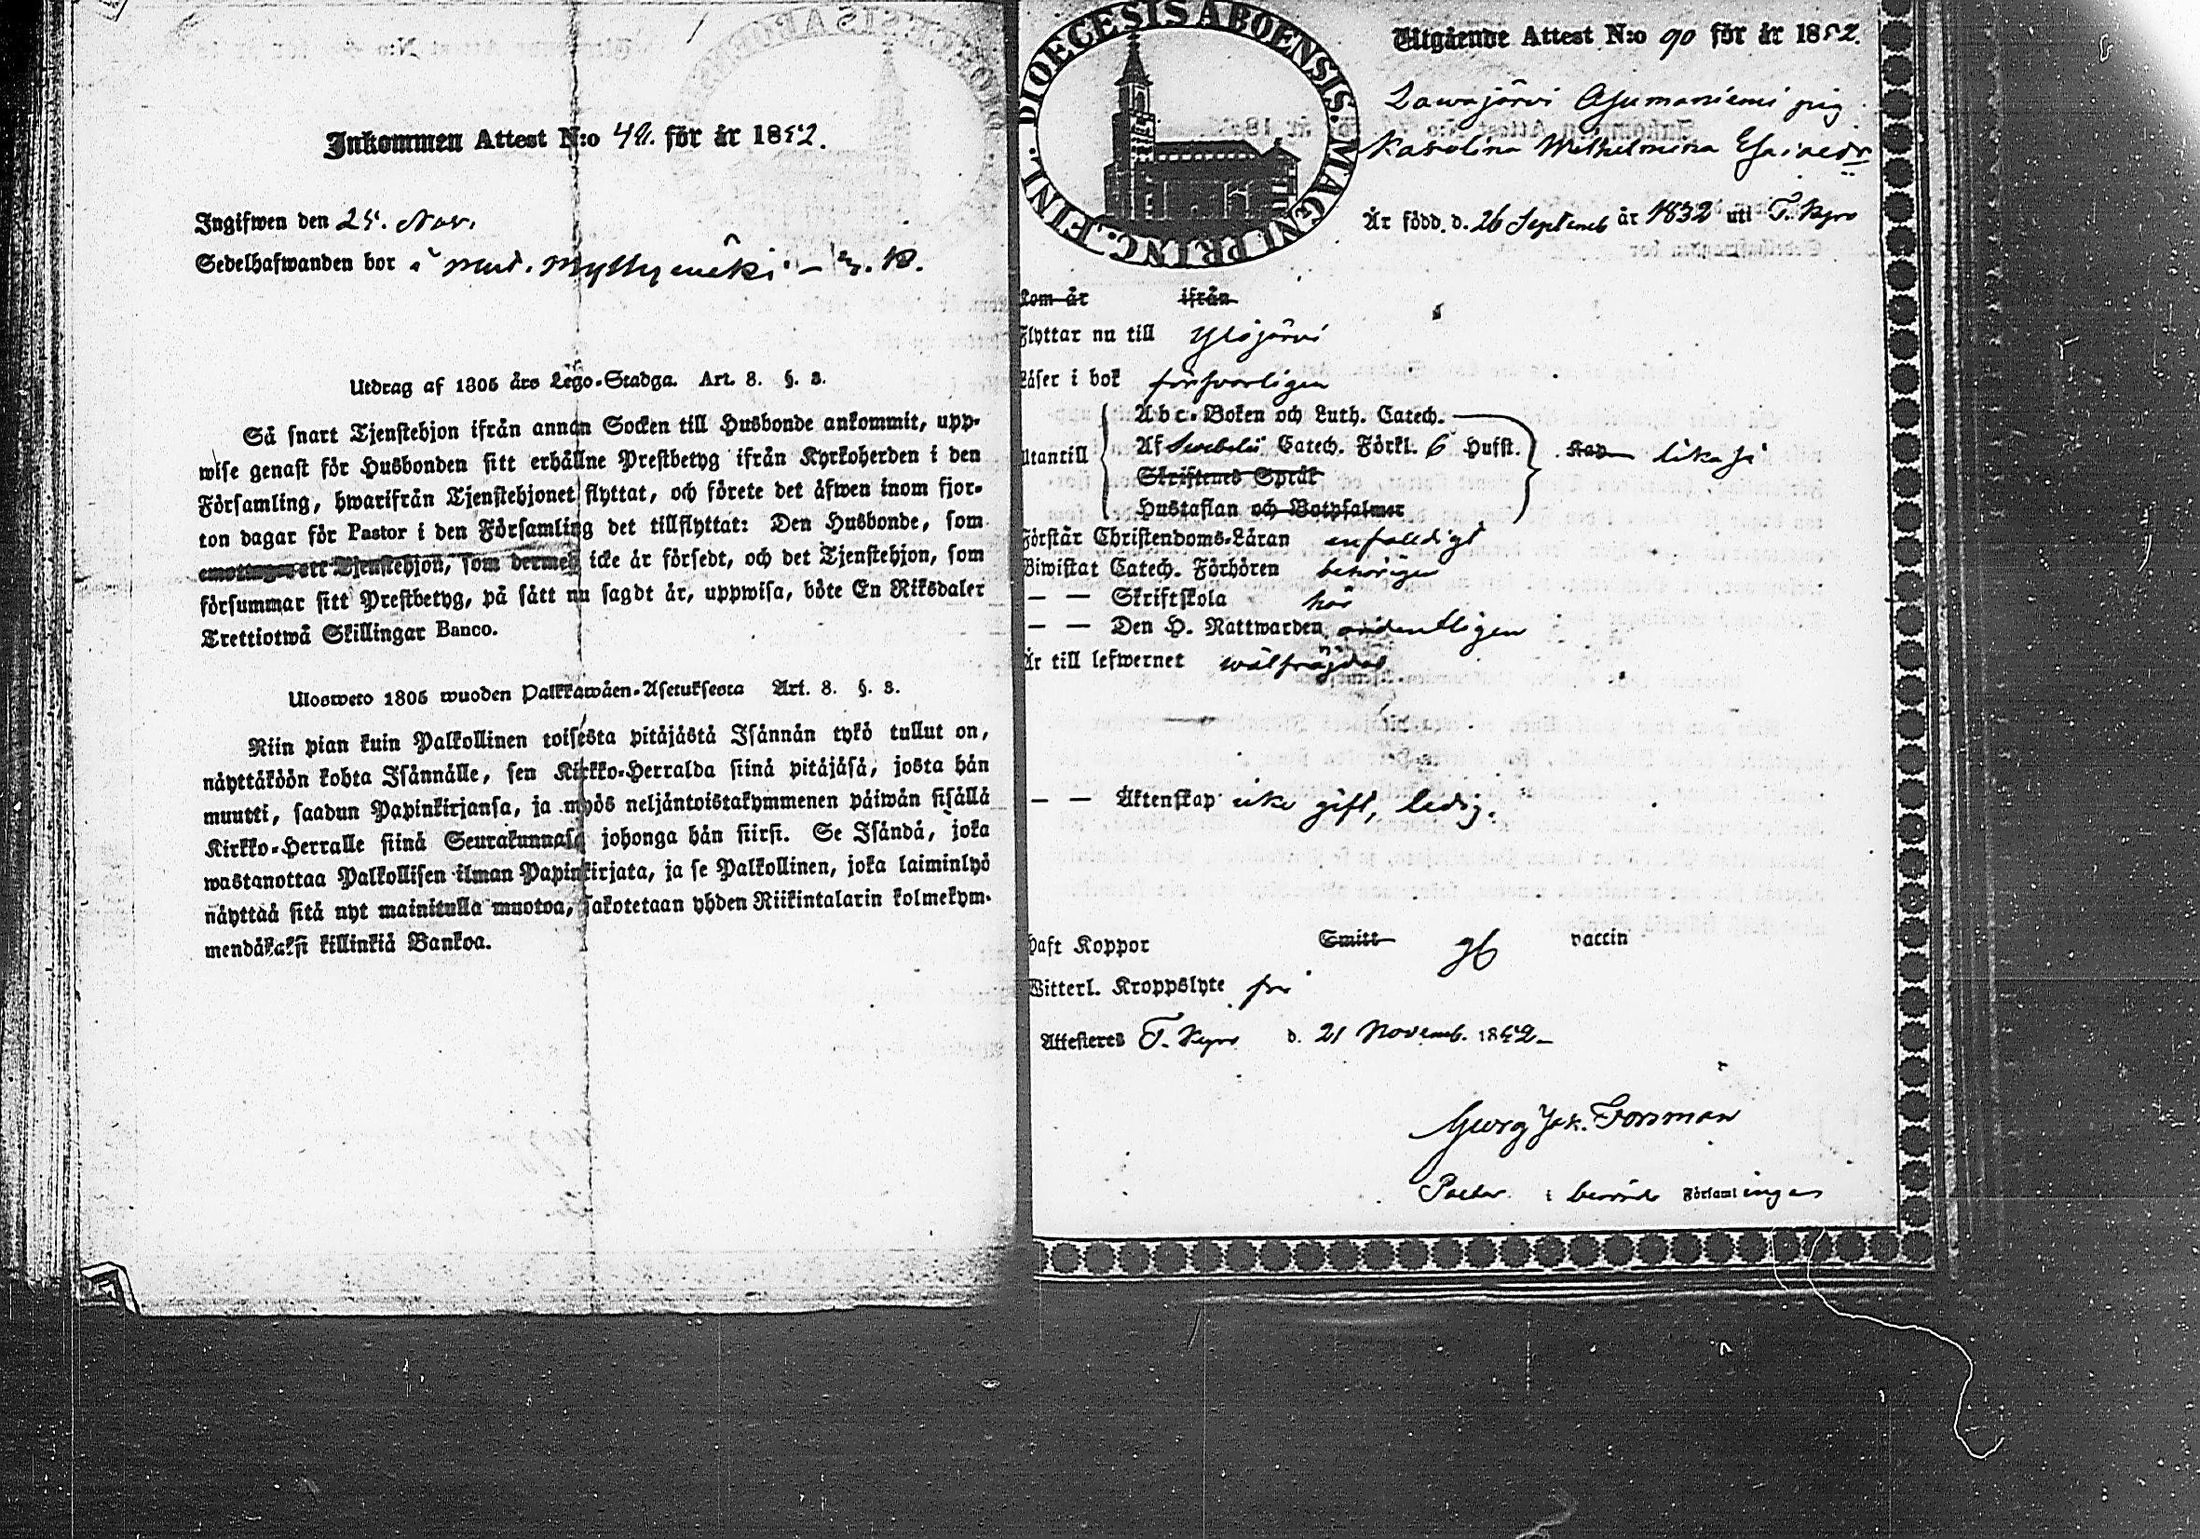 Inkommen Attest N:o 42. för år 1852.
Ingifwen den 25. Nov.
Sedelhafwanden bor
Utdrag af 1805 års Lego-Stadga. Art. 8. §. 3.
Så snart Tjenstehjon ifrån annan Socken till Husbonde ankommit, upp-
wise genast för Husbonden sitt erhållne Prestbetyg ifrån Kyrkoherden i den
Församling, hwarifrån Tjenstehjonet flyttat, och förete det äfwen inom fjor-
ton dagar för Pastor i den Församling det tillflyttat: Den Husbonde, som
emottager ett Tjenstehjon, som dermed icke är försedt, och det Tjenstehjon, som
försummar sitt Prestbetyg, på sätt nu sagdt är, uppwisa, böte En Riksdaler
Trettiotwå Skillingar Banco.
Ulosweto 1805 wuoden Palkkawäen-Asetuksesta Art. 8. §. 3.
Niin pian kuin Palkollinen toisesta pitäjästä Isännän tykö tullut on,
näyttäköön kohta Isännälle, sen Kirkko-Herralda siinä pitäjäsä, josta hän
muutti, saadun Papinkirjansa, ja myös neljäntoistakymmenen päiwän sisällä
Kirkko-Herralle siinä Seurakunnasa johonga hän siirsi. Se Isändä, joka
wastanottaa Palkollisen ilman Papinkirjata, ja se Palkollinen, joka laiminlyö
näyttää sitä nyt mainitulla muotoa, sakotetaan yhden Riikintalarin kolmekym-
mendäkaksi killinkiä Bankoa.
DIOECESIS ABOENSIS. MAGNI PRINC. FINL.
Utgående Attest N:o 90 för år 1852.
Lawajärvi Asumaniemi pig
Karolina Wilhelmina Esaiaedr
Är född. d. 26 Septemb år 1832 uti T. Kyro
kom år ifrån
Flyttar nu till Ylöjärvi
Läser i bok försvarligen
Abc-Boken och Luth. Catech.
Utantill Af Svebelii Catech. Förkl. 6 Hufst. Kap likaså
Skriftenes Språk
Hustaflan och Botpsalmer
Förstår Christendoms-Läran enfaldigt
Biwistat Catech. Förhören behörigen
— — Skriftskola här
— — Den H. Nattwarden ordentligen
Är till lefwernet wälfrägdad
— — Äktenskap icke gift, ledig.
Haft Koppor Smitt vaccin
Witterl. Kroppslyte fri
Attesteres T. Kyro d. 21 Novemb. 1852
Georg Jak. Forsman
Pastor i berörde Församlingen